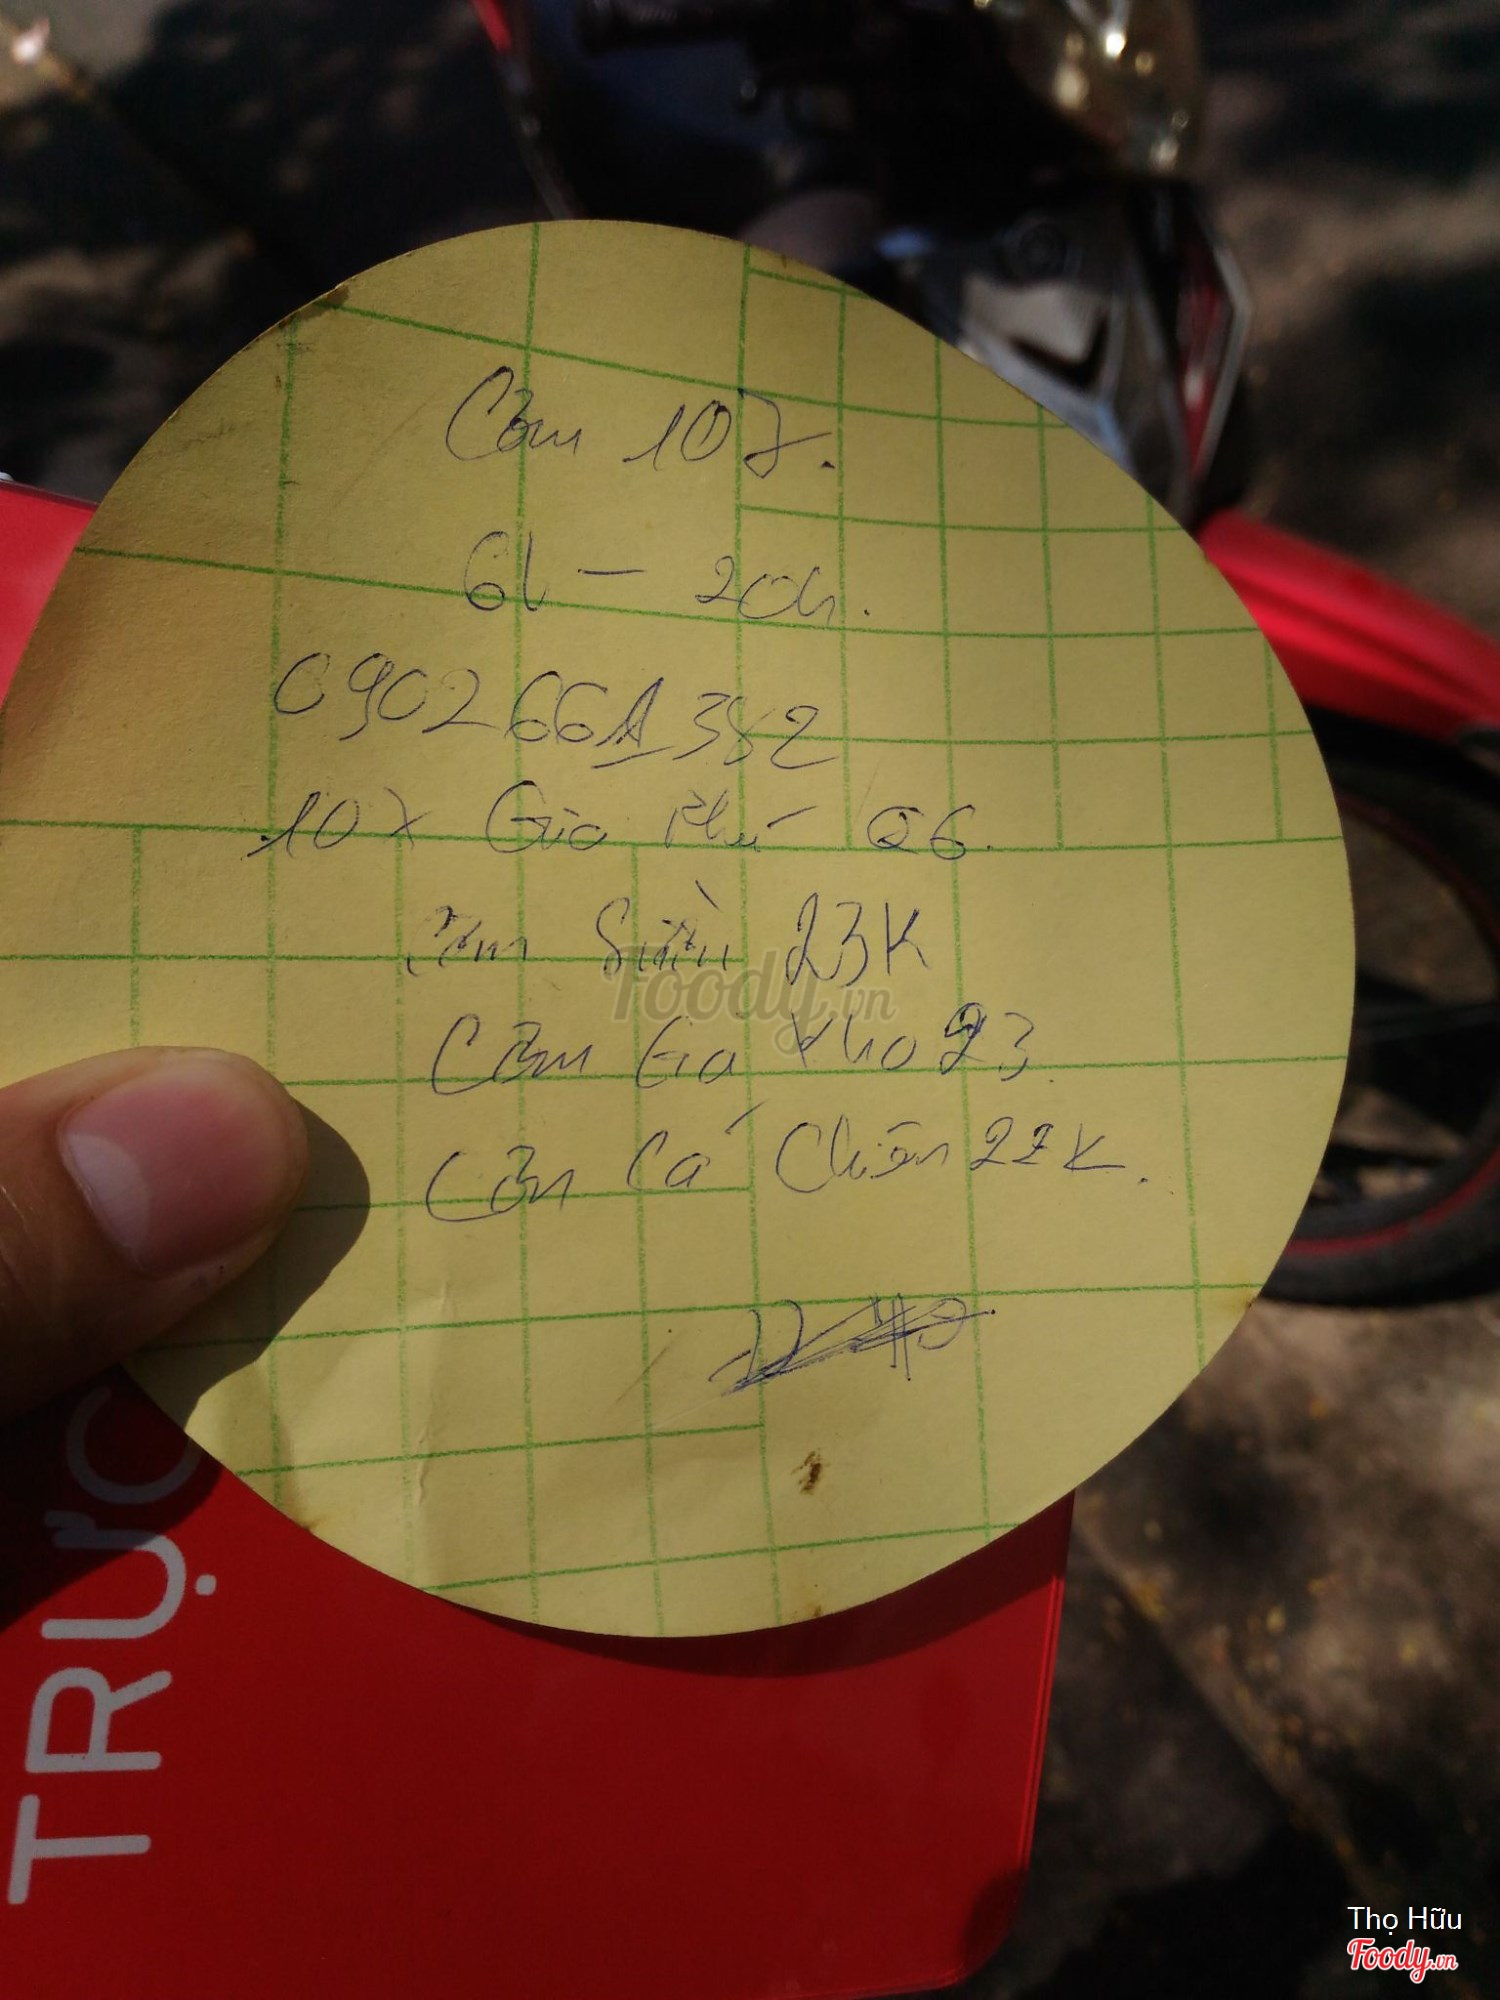 Cơm 107.
6h - 20h.
0902661382
107 Gia Phú Q6.
Cơm Sườn 23K
Cơm Gà Kho 23
Cơm Cá Chiên 22K.
Foody.vn
TRỰC
Thọ Hữu
Foody.vn